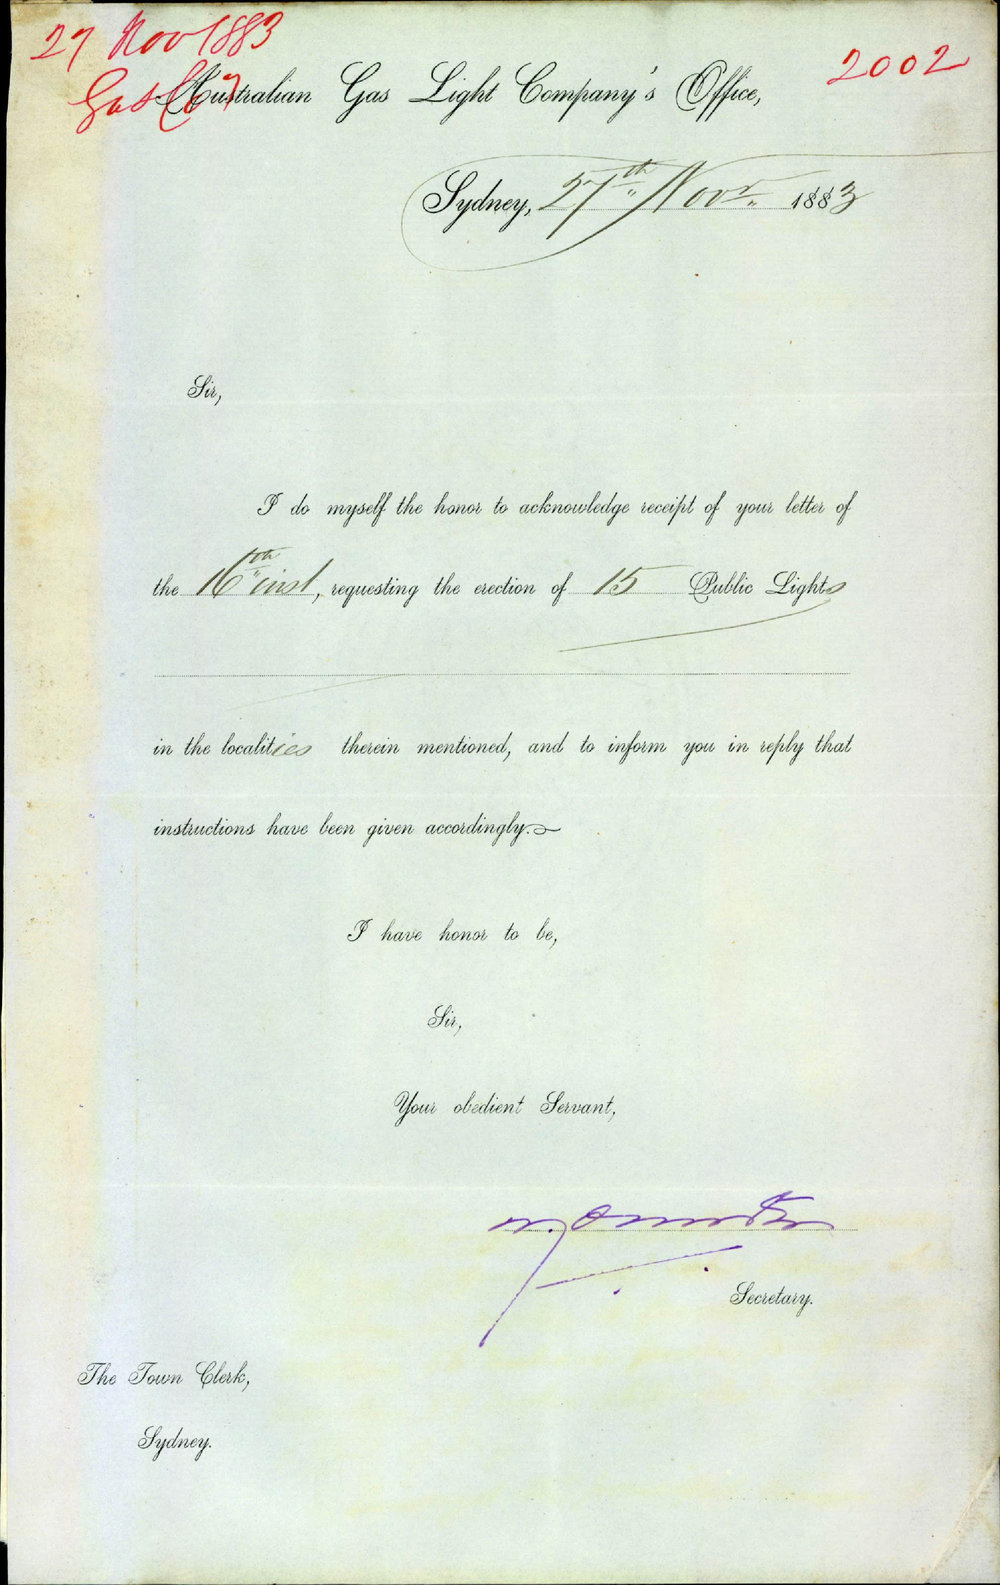 27 Nov 1883
2002
Gas Co
Australian Gas Light Company's Office,
Sydney, 27th Novr. 1883
Sir,
I do myself the honor to acknowledge receipt of your letter of
the 16th inst, requesting the erection of 15 Public Lights
in the localities therein mentioned, and to inform you in reply that
instructions have been given accordingly.
I have honor to be,
Sir,
Your obedient Servant,
Secretary.
The Town Clerk,
Sydney.